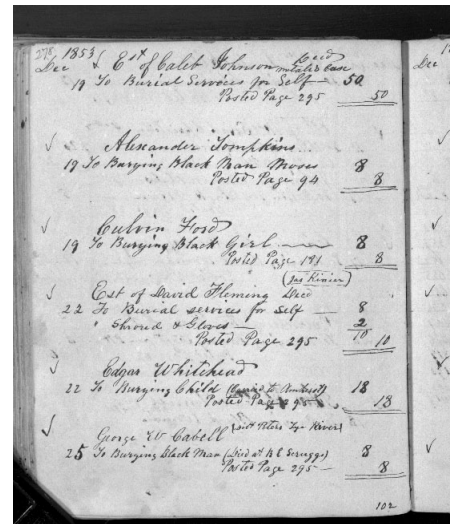 278 1853
Dec Est of Caleb Johnson Decd
metalic Case
19 To Burial Services for Self — 50
Posted Page 295 50
Alexander Tompkins
19 To Burying Black Man Moses 8
Posted Page 94 8
Culvin Ford
19 To Burying Black Girl — 8
Posted Page 191 8
Est of David Fleming Decd
22 To Burial services for Self — 8
" Shroud & Gloves — 2
10
Posted Page 295 10
Edgar Whitehead
22 To Burying Child 18
Posted Page 295 18
George W Cabell River
25 To Burying Black Man (Died at R C Scruggs) 8
Posted Page 295 — 8
102
Dec